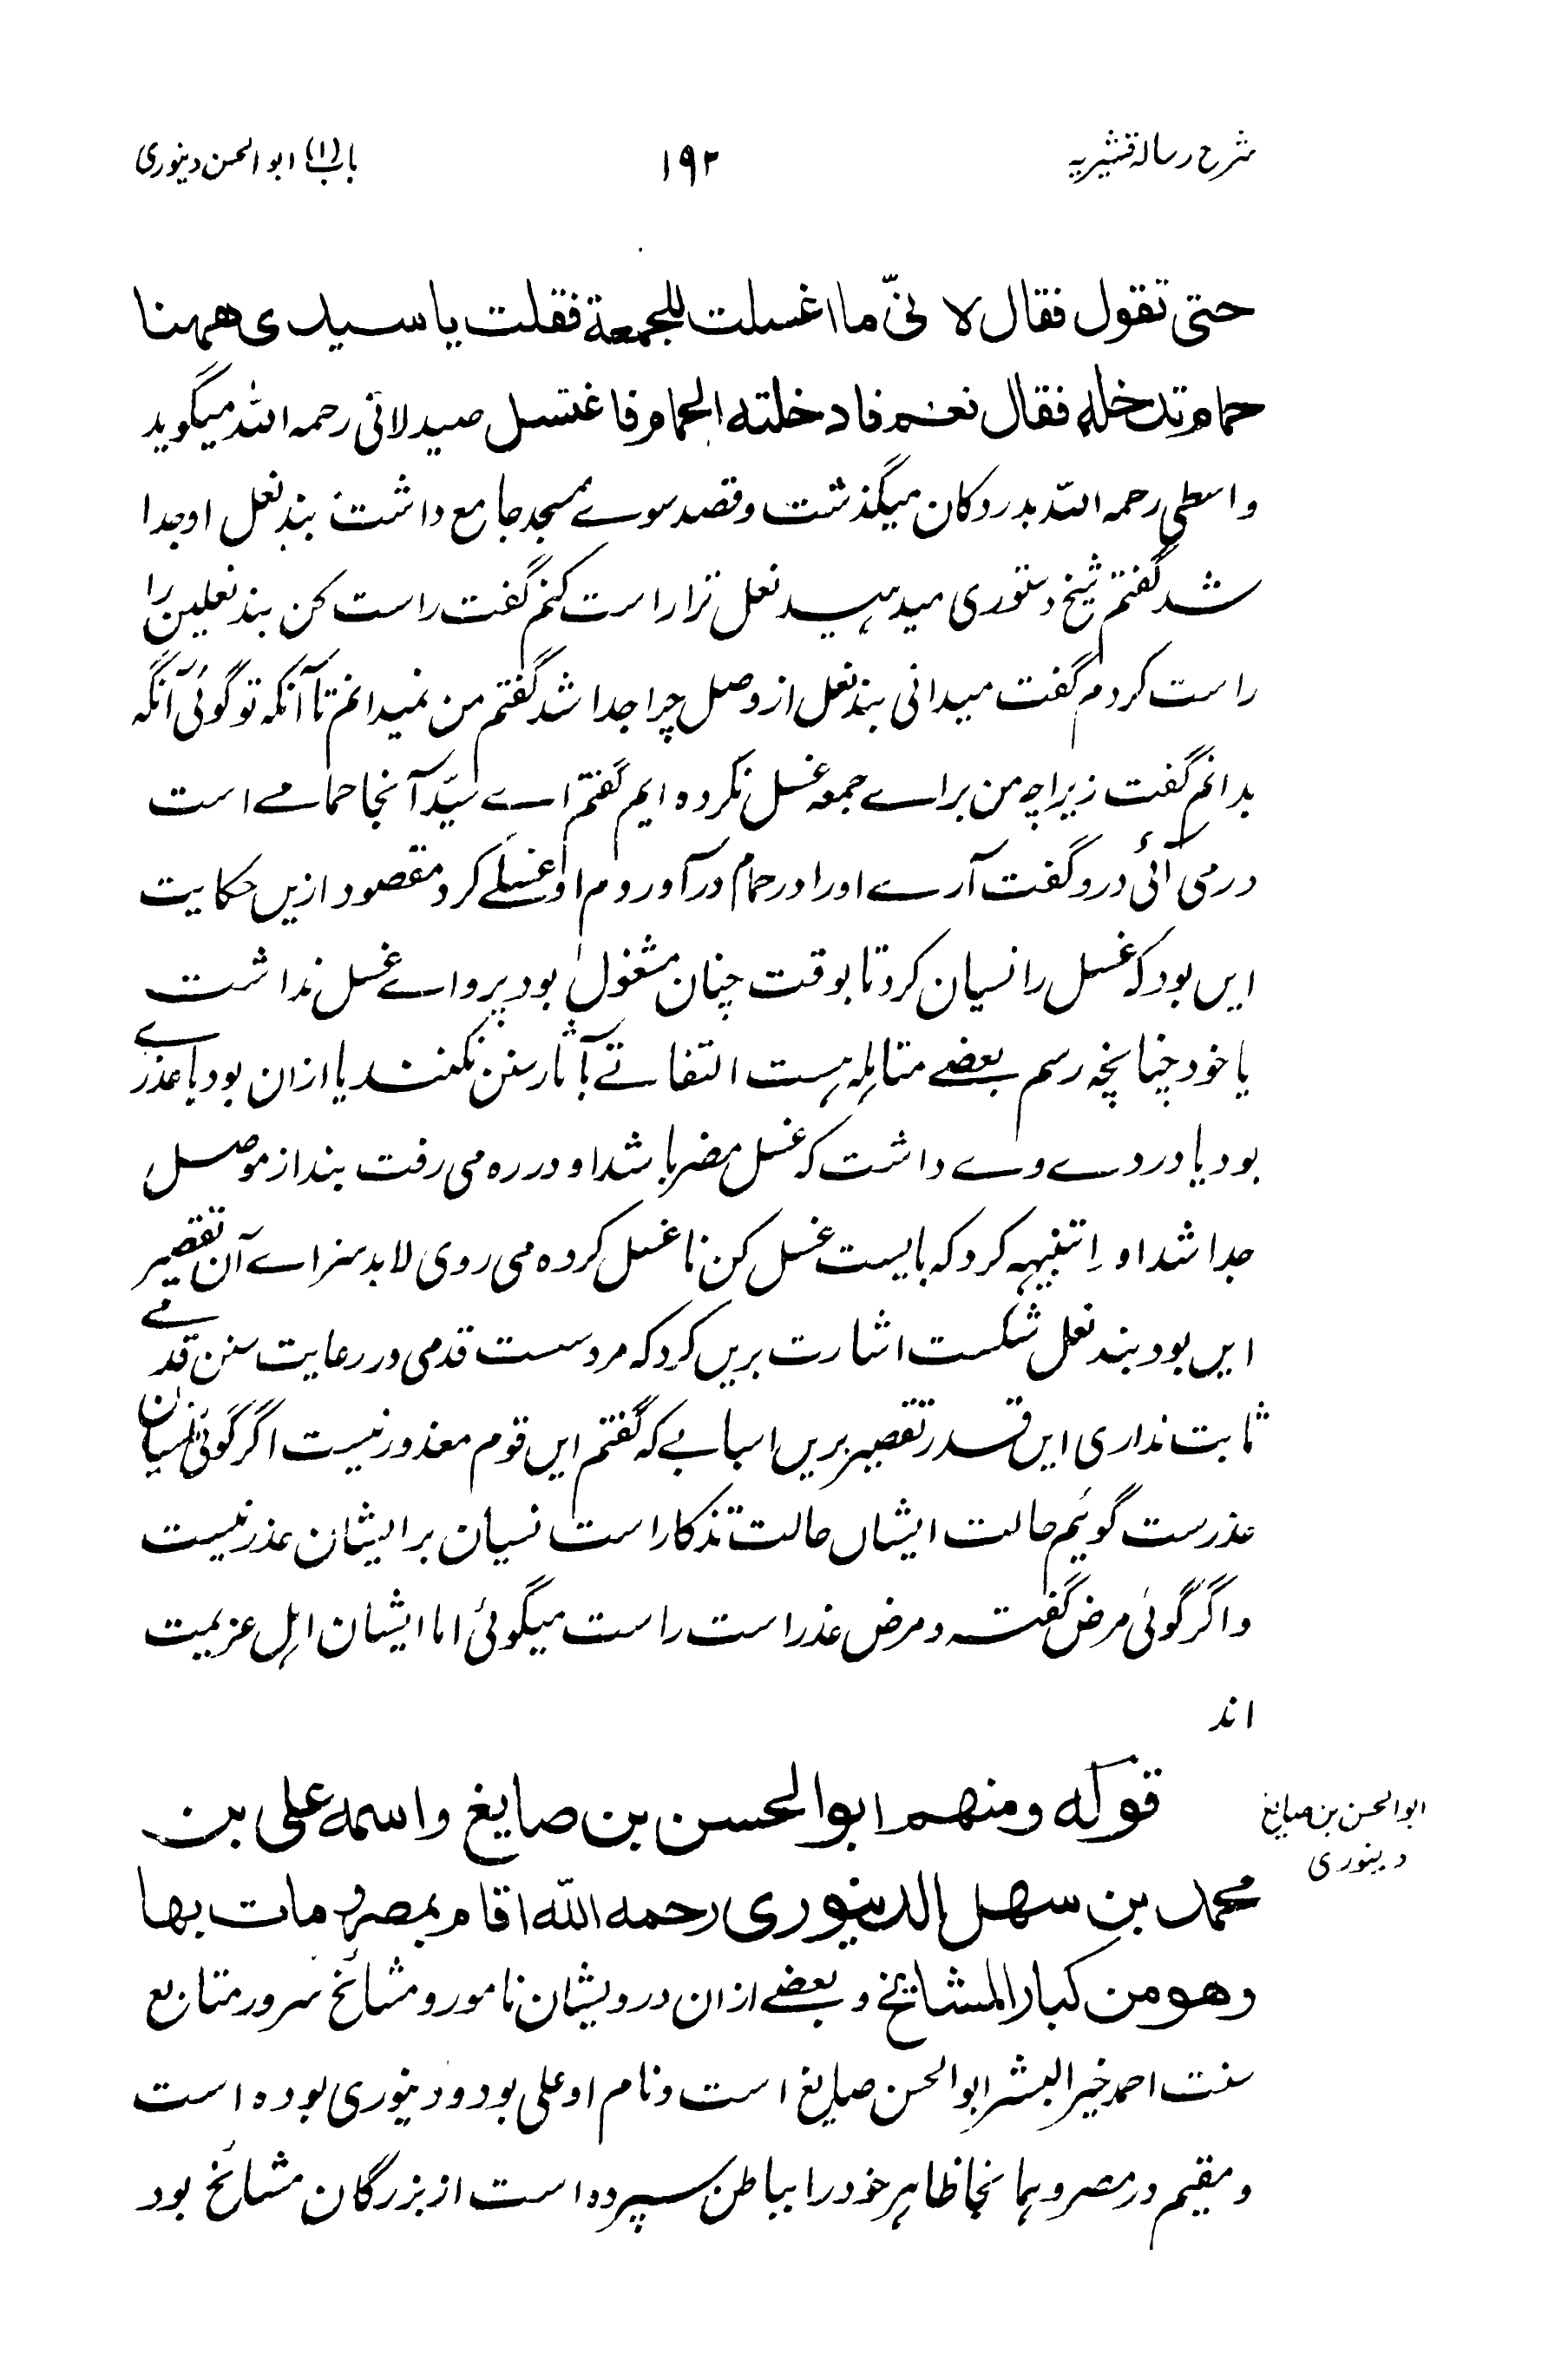 شرح رسالہ قشیریہ ۱۹۲ باب (۱) ابوالحسن دینوری
حتی تقول فقال لا نّی ما اغسلت للجمعة فقلت یا سیدی ههنا
حمام تدخله فقال نعم فادخلته الحمام فاغتسل صیدلانی رحمہ اللہ میگوید
واسطی رحمہ اللہ بدر دکان میگذشت و قصد سوے مسجد جامع داشت بند نعل او جدا
شد گفتم شیخ دستوری میدہید نعل ترا راست کنم گفت راست کن بند نعلین را
راست کردم گفت میدانی بند نعل از وصل چرا جدا شد گفتم من نمیدانم تا آنکہ تو گوئی آنگہ
بدانم گفت زیراچہ من براے جمعہ غسل نکردہ ایم گفتم اے سیّد آنجا حمامے است
درمی آئی درو گفت آرے اورا در حمام در آوردم او غسلے کرد مقصود ازیں حکایت
ایں بود کہ غسل را نسیان کرد تا بوقت چنان مشغول بود پرواے غسل نداشت
یا خود چنانچہ رسم بعضے متالہہ ہست التفاتے بآثار سنن نکنند یا ازان بود یا عذرے
بود یا دردے وے داشت کہ غسل مضر باشد او در رہ می رفت بند از موصل
جدا شد او را تنبیہہ کرد کہ بایست غسل کن نا غسل کردہ می روی لابد سزاے آن تقصیر
ایں بود بند نعل شکست اشارت بریں کرد کہ مرد ست قدمی در رعایت سنن قدمے
ثابت نداری ایں قدر تقصیر بریں اسبابے کہ گفتم ایں قوم معذور نیست اگر گوئی نسیان
عذرست گوئیم حالت ایشاں حالت تذکار است نسیان بر ایشان عذر نیست
و اگر گوئی مرض گفتہ و مرض عذر است راست میگوئی اما ایشان اہل عزیمت
اند
قوله ومنهم ابوالحسن بن صایغ واسمه علی بن
محمد بن سهل الدینوری رحمه الله اقام بمصر و مات بها
وهو من کبار المشایخ و بعضے ازان درویشان نامور و مشائخ سرور متابع
سنت احمد خیر البشر ابوالحسن صایغ است و نام او علی بود و دینوری بودہ است
و مقیم در مصر و ہمانجا ظاہر خود را بباطن سپردہ است از بزرگان مشائخ بود
ابوالحسن بن صایغ
دینوری